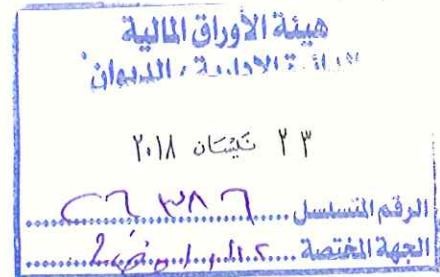 هيئة الأوراق المالية
الدائرة الإدارية / الديوان
٢٣ نيسان ٢٠١٨
الرقم المتسلسل
الجهة المختصة